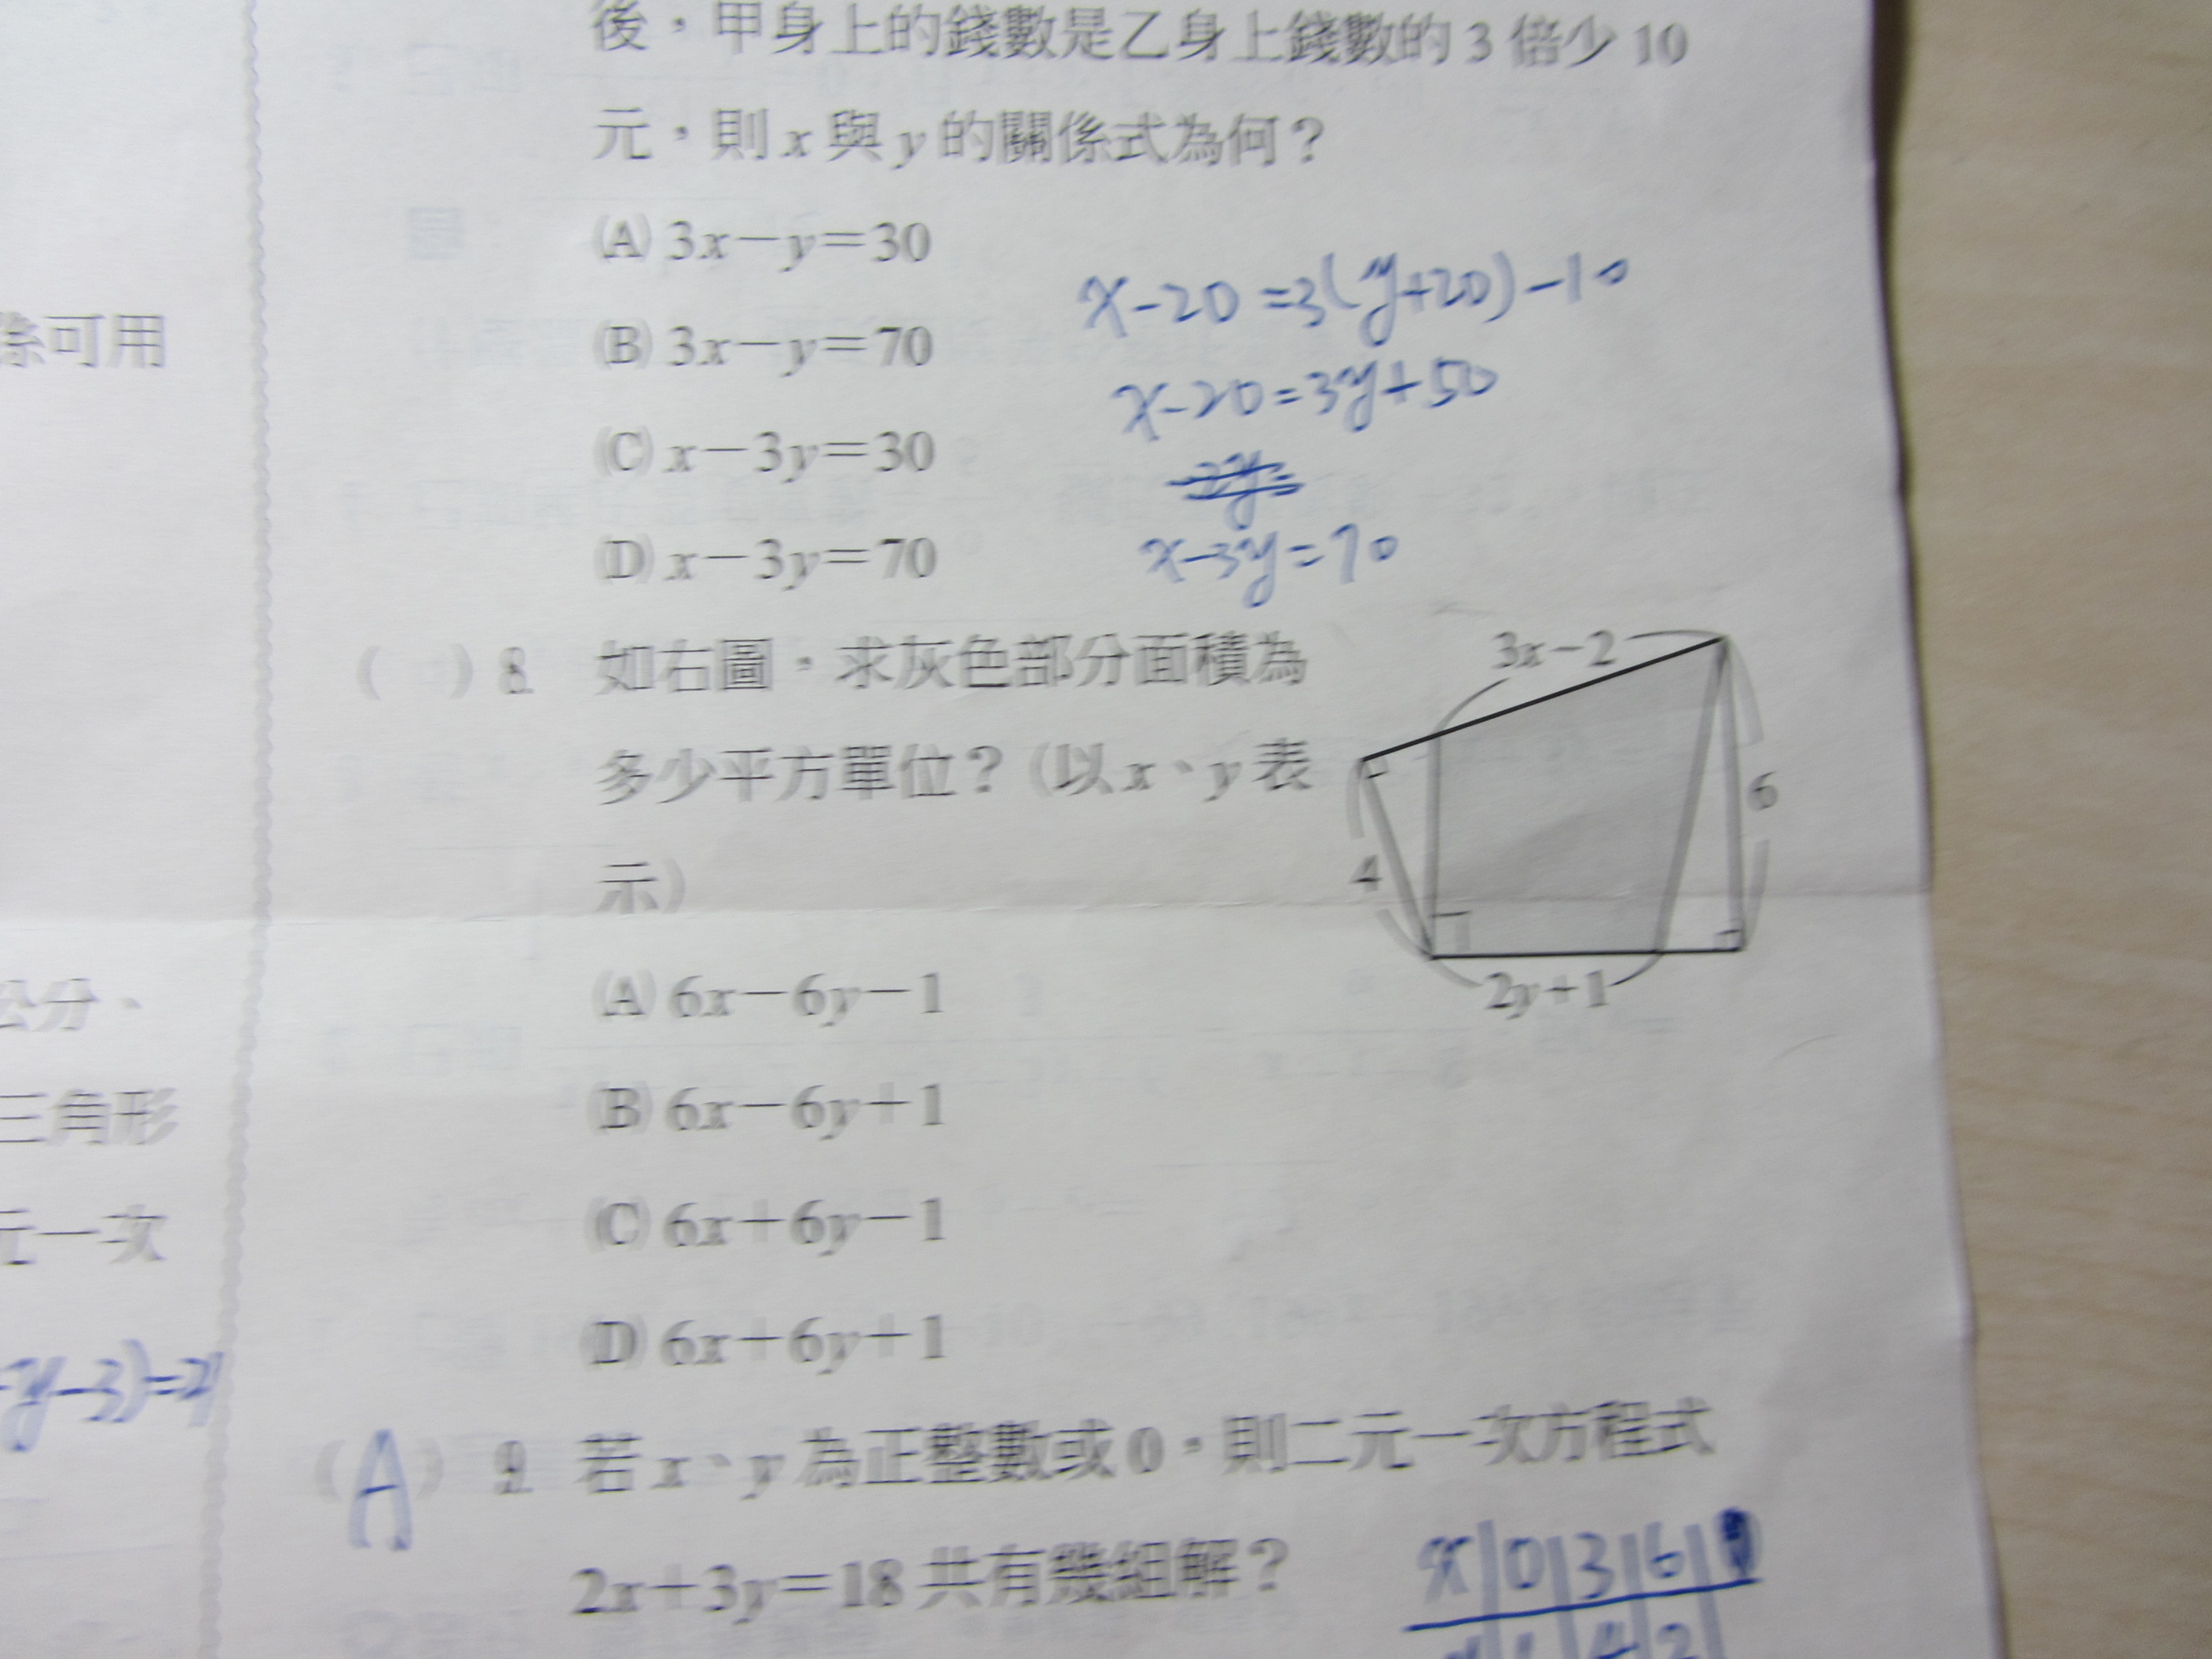 後，甲身上的錢數是乙身上錢數的3倍少10
元，則x與y的關係式為何？
(A) 3x－y＝30
(B) 3x－y＝70
(C) x－3y＝30
(D) x－3y＝70
x-20=3(y+20)-10
x-20=3y+50
x-3y=70
( ) 8. 如右圖，求灰色部分面積為
多少平方單位？(以x、y表
示)
3x－2
6
4
2y＋1
(A) 6x－6y－1
(B) 6x－6y＋1
(C) 6x＋6y－1
(D) 6x＋6y＋1
(A) 9. 若x、y為正整數或0，則二元一次方程式
2x＋3y＝18共有幾組解？
x 0 3 6
4 2
係可用
公分、
三角形
元一次